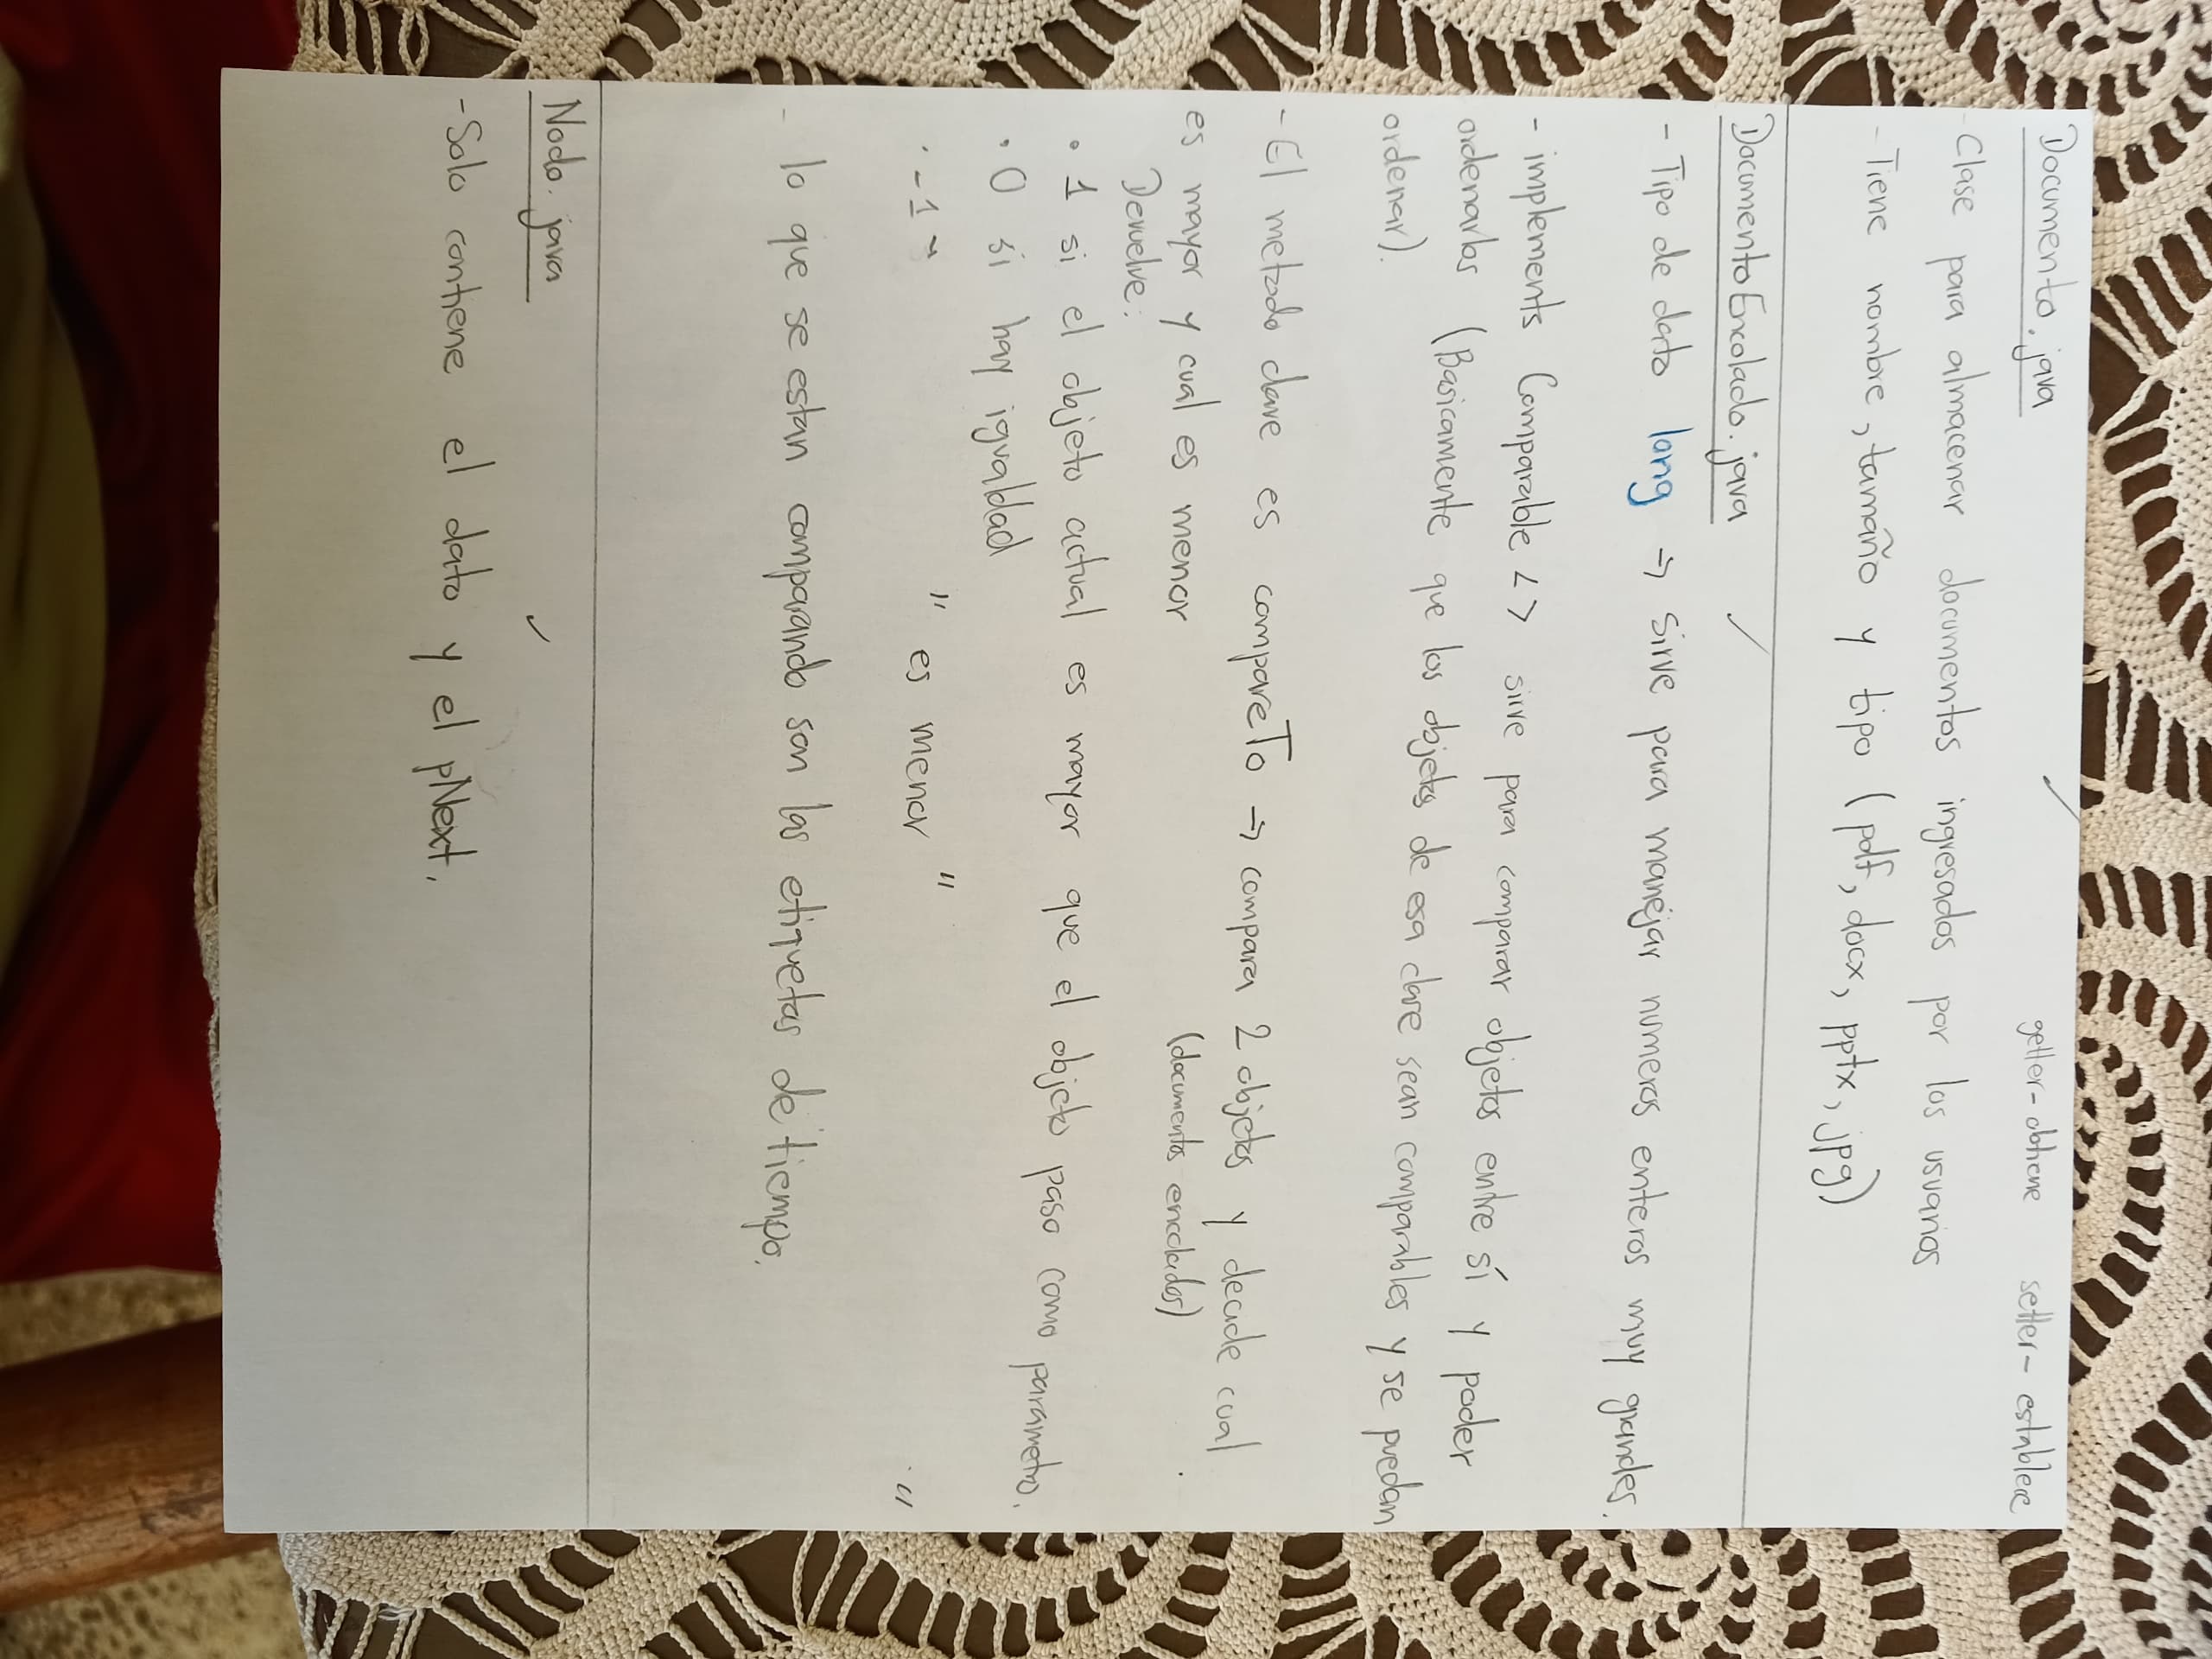 Documento.java ✓ getter-obtiene setter-establece
- Clase para almacenar documentos ingresados por los usuarios
- Tiene nombre, tamaño y tipo (pdf, docx, pptx, jpg)
DocumentoEncolado.java ✓
- Tipo de dato long → sirve para manejar numeros enteros muy grandes.
- implements Comparable <> sirve para comparar objetos entre sí y poder
ordenarlos (Basicamente que los objetos de esa clase sean comparables y se puedan
ordenar).
- El metodo clave es compareTo → compara 2 objetos y decide cual
(documentos encolados)
es mayor y cual es menor
Devuelve:
• 1 si el objeto actual es mayor que el objeto paso como parametro.
• 0 si hay igualdad
• -1 " " es menor " "
- lo que se estan comparando son las etiquetas de tiempo.
Nodo.java ✓
- Solo contiene el dato y el pNext.